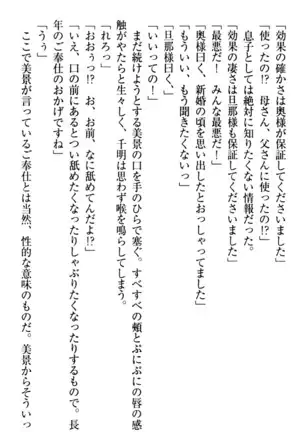 「効果の確かさは奥様が保証してくださいました」
「使ったの!? 母さん、父さんに使ったの!?」
息子としては絶対に知りたくない情報だった。
「効果の凄さは旦那様も保証してくださいました」
「最悪だ! みんな最悪だ!」
「奥様曰く、新婚の頃を思い出したとおっしゃってました」
「もういい、もう聞きたくないっ」
「旦那様曰く、」
「いいっての!」
まだ続けようとする美景の口を手のひらで塞ぐ。すべすべの頬とぷにぷにの唇の感
触がやたらと生々しく、千明は思わず喉を鳴らしてしまう。
「れろっ」
「おおぅっ!? お、お前、なに舐めてんだよ!?」
「いえ、口の前にあるとつい舐めたくなったりしゃぶりたくなったりするもので。長
年のご奉仕のおかげですね」
「うぅ」
ここで美景が言っているご奉仕とは当然、性的な意味のものだ。美景からそういっ